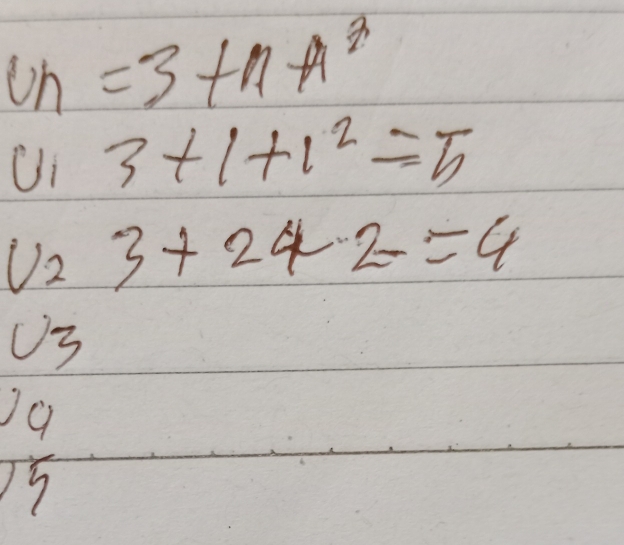 Un = 3 + n + n²
U1 3 + 1 + 1² = 5
U2 3 + 2 2 = 4
U3
U4
U5